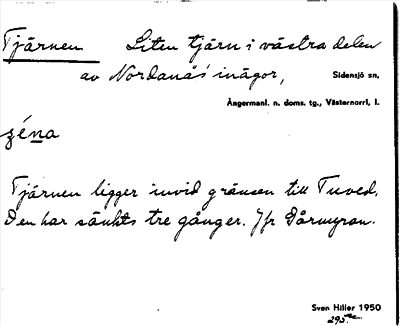 Tjärnen Liten tjärn i västra delen
av Nordanås' inägor, Sidensjö sn,
Ångermanl. n. doms. tg., Västernorrl. l.
Tjärnen ligger invid gränsen till Tuved.
Den har sänkts tre gånger. Jfr Gårmyran.
Sven Hiller 1950